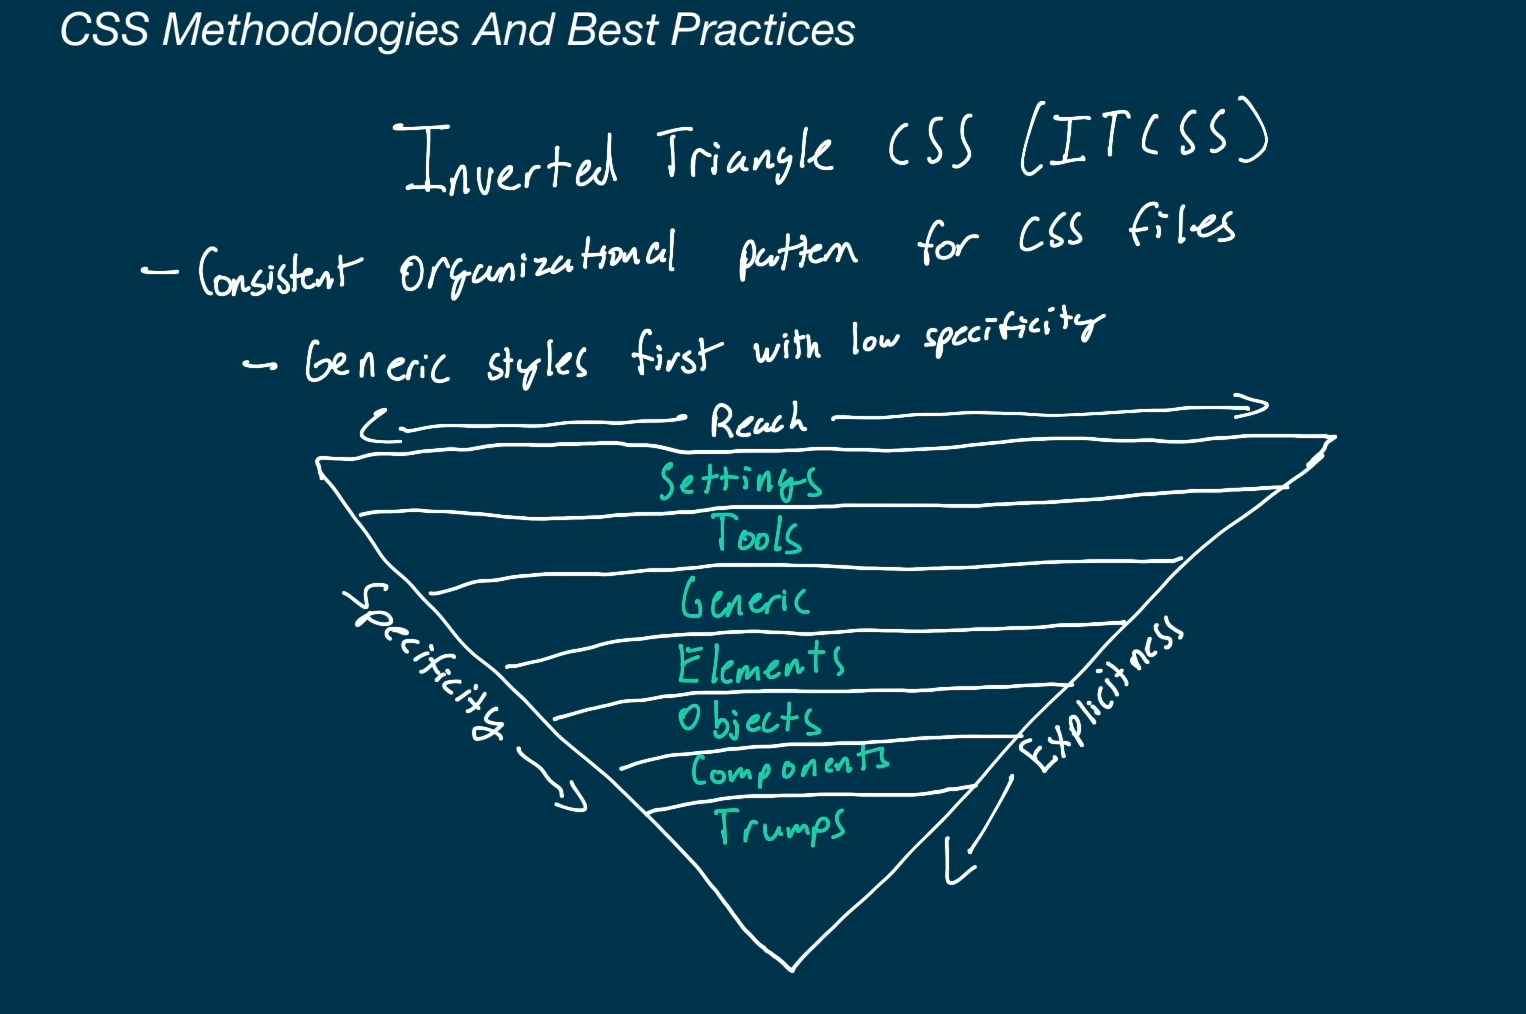 CSS Methodologies And Best Practices
Inverted Triangle CSS (ITCSS)
- Consistent organizational pattern for CSS files
- Generic styles first with low specificity
Reach
Settings
Tools
Generic
Elements
Objects
Components
Trumps
Specificity
Explicitness